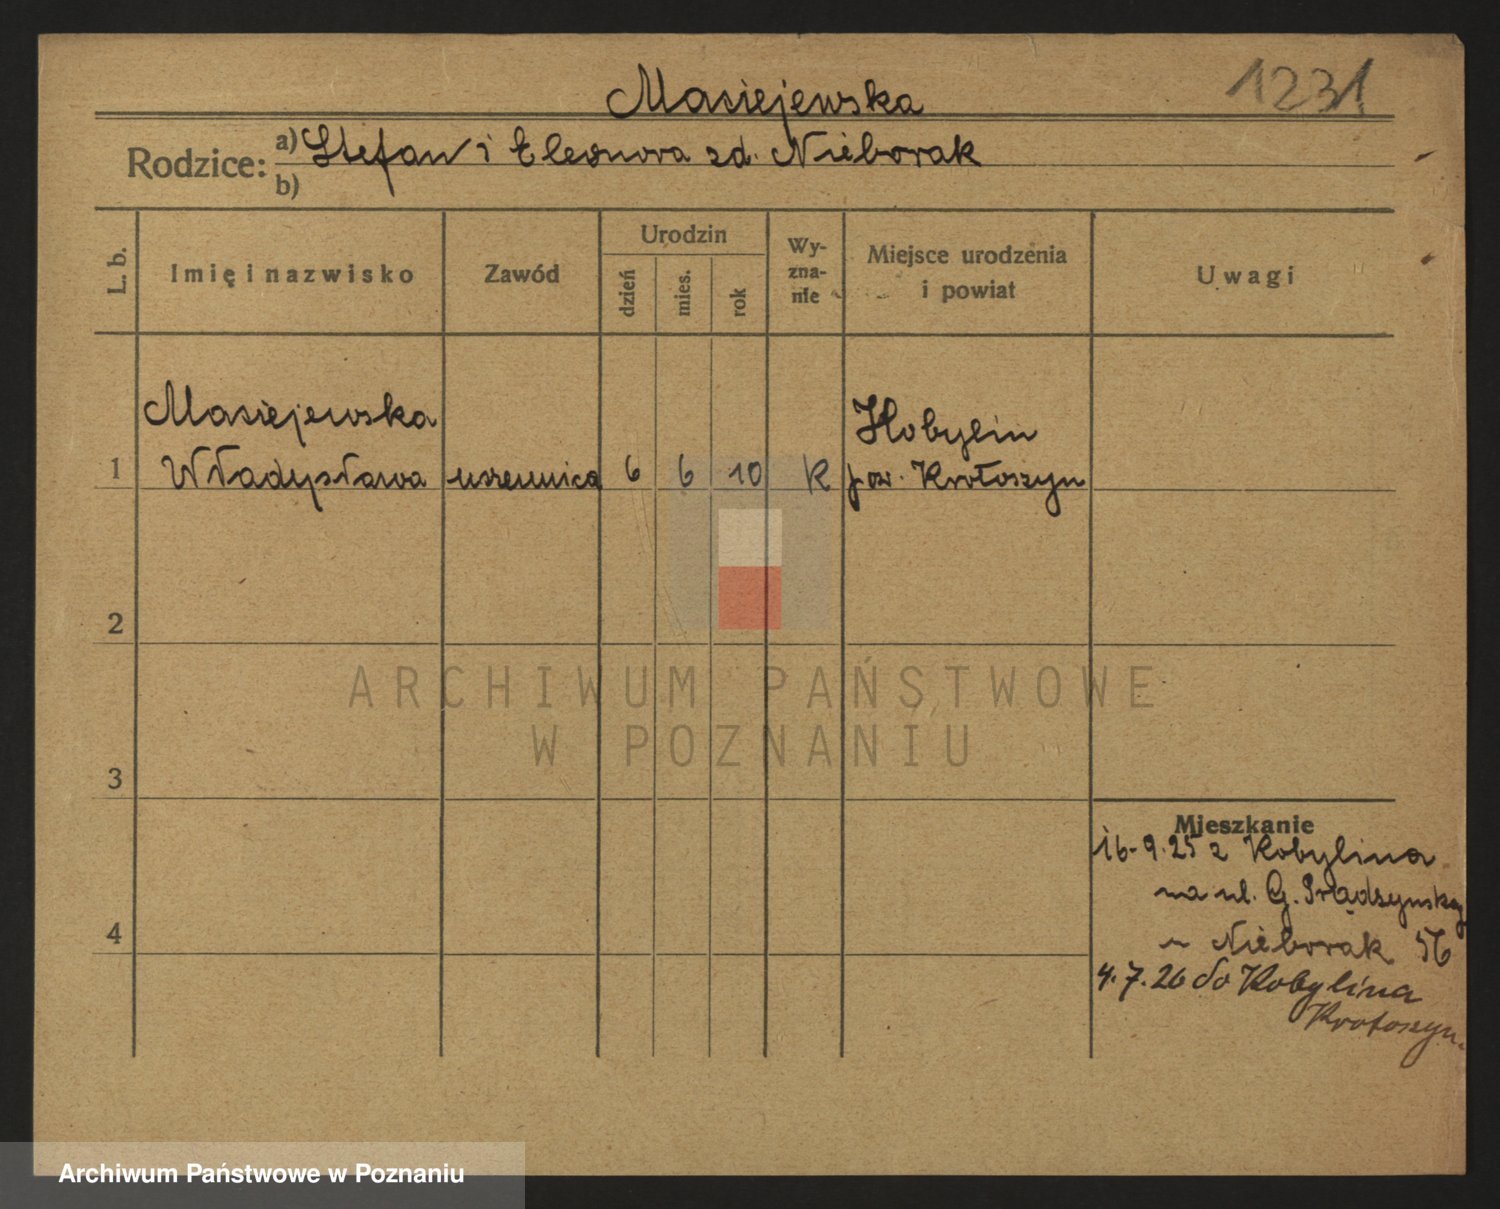 1231
Maciejewska
Rodzice: a) Stefan i Eleonora zd. Nieborak
b)
L. b.
Imię i nazwisko
Zawód
Urodzin
dzień
mies.
rok
Wy-
zna-
nie
Miejsce urodzenia
i powiat
Uwagi
Maciejewska
Kobylin
1 Władysława uczennica 6 6 10 K pow. Krotoszyn
2
ARCHIWUM PAŃSTWOWE
W POZNANIU
3
Mieszkanie
16.9.25 z Kobylina
na ul. G. Prądzyńskiego
u Nieborak
4
4.7.26 do Kobylina
Krotoszyn
Archiwum Państwowe w Poznaniu